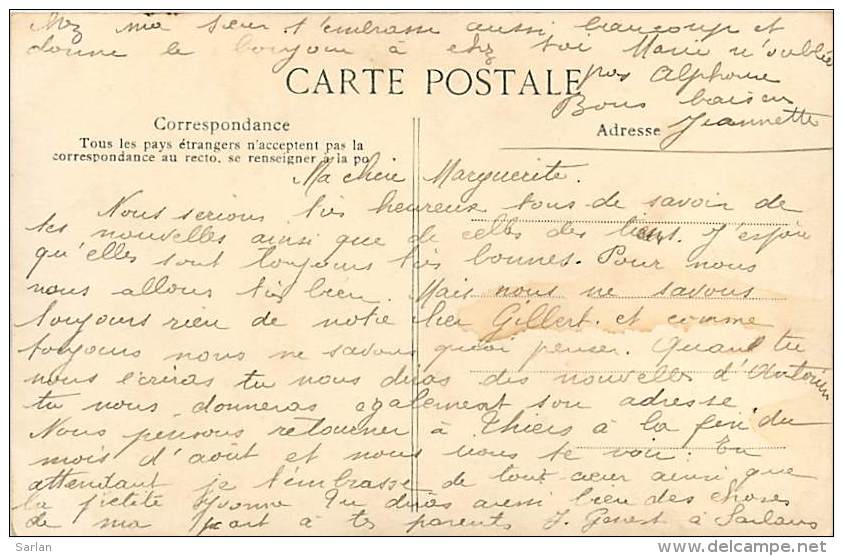 Mez ma sœur t'embrasse aussi beaucoup et
donne le bonjour à chz toi Marie n'oublie
pas Alphonse
Bons baisers
Jeannette
CARTE POSTALE
Correspondance
Tous les pays étrangers n'acceptent pas la
correspondance au recto, se renseigner à la po
Adresse
Ma chère Marguerite.
Nous serions très heureux tous de savoir de
tes nouvelles ainsi que de celles des tiens. J'espère
qu'elles sont toujours très bonnes. Pour nous
nous allons très bien. Mais nous ne savons
toujours rien de notre cher Gilbert. et comme
toujours nous ne savons quoi penser. Quand tu
nous écriras tu nous diras des nouvelles d'Antonin
tu nous donneras egalement son adresse
Nous pensons retourner à Thiers à la fin du
mois d'août et nous irons te voir. En
attendant je t'embrasse de tout cœur ainsi que
la petite Yvonne Tu diras aussi bien des choses
de ma part à tes parents J. Genest à Sarlans
Sarlan
http://www.delcampe.net